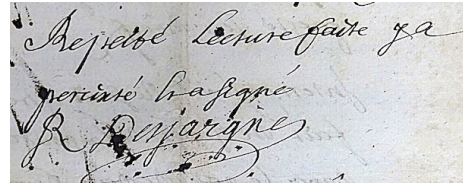 Repetté Lecture faite y a
percisté & a signé
R Desjargnes